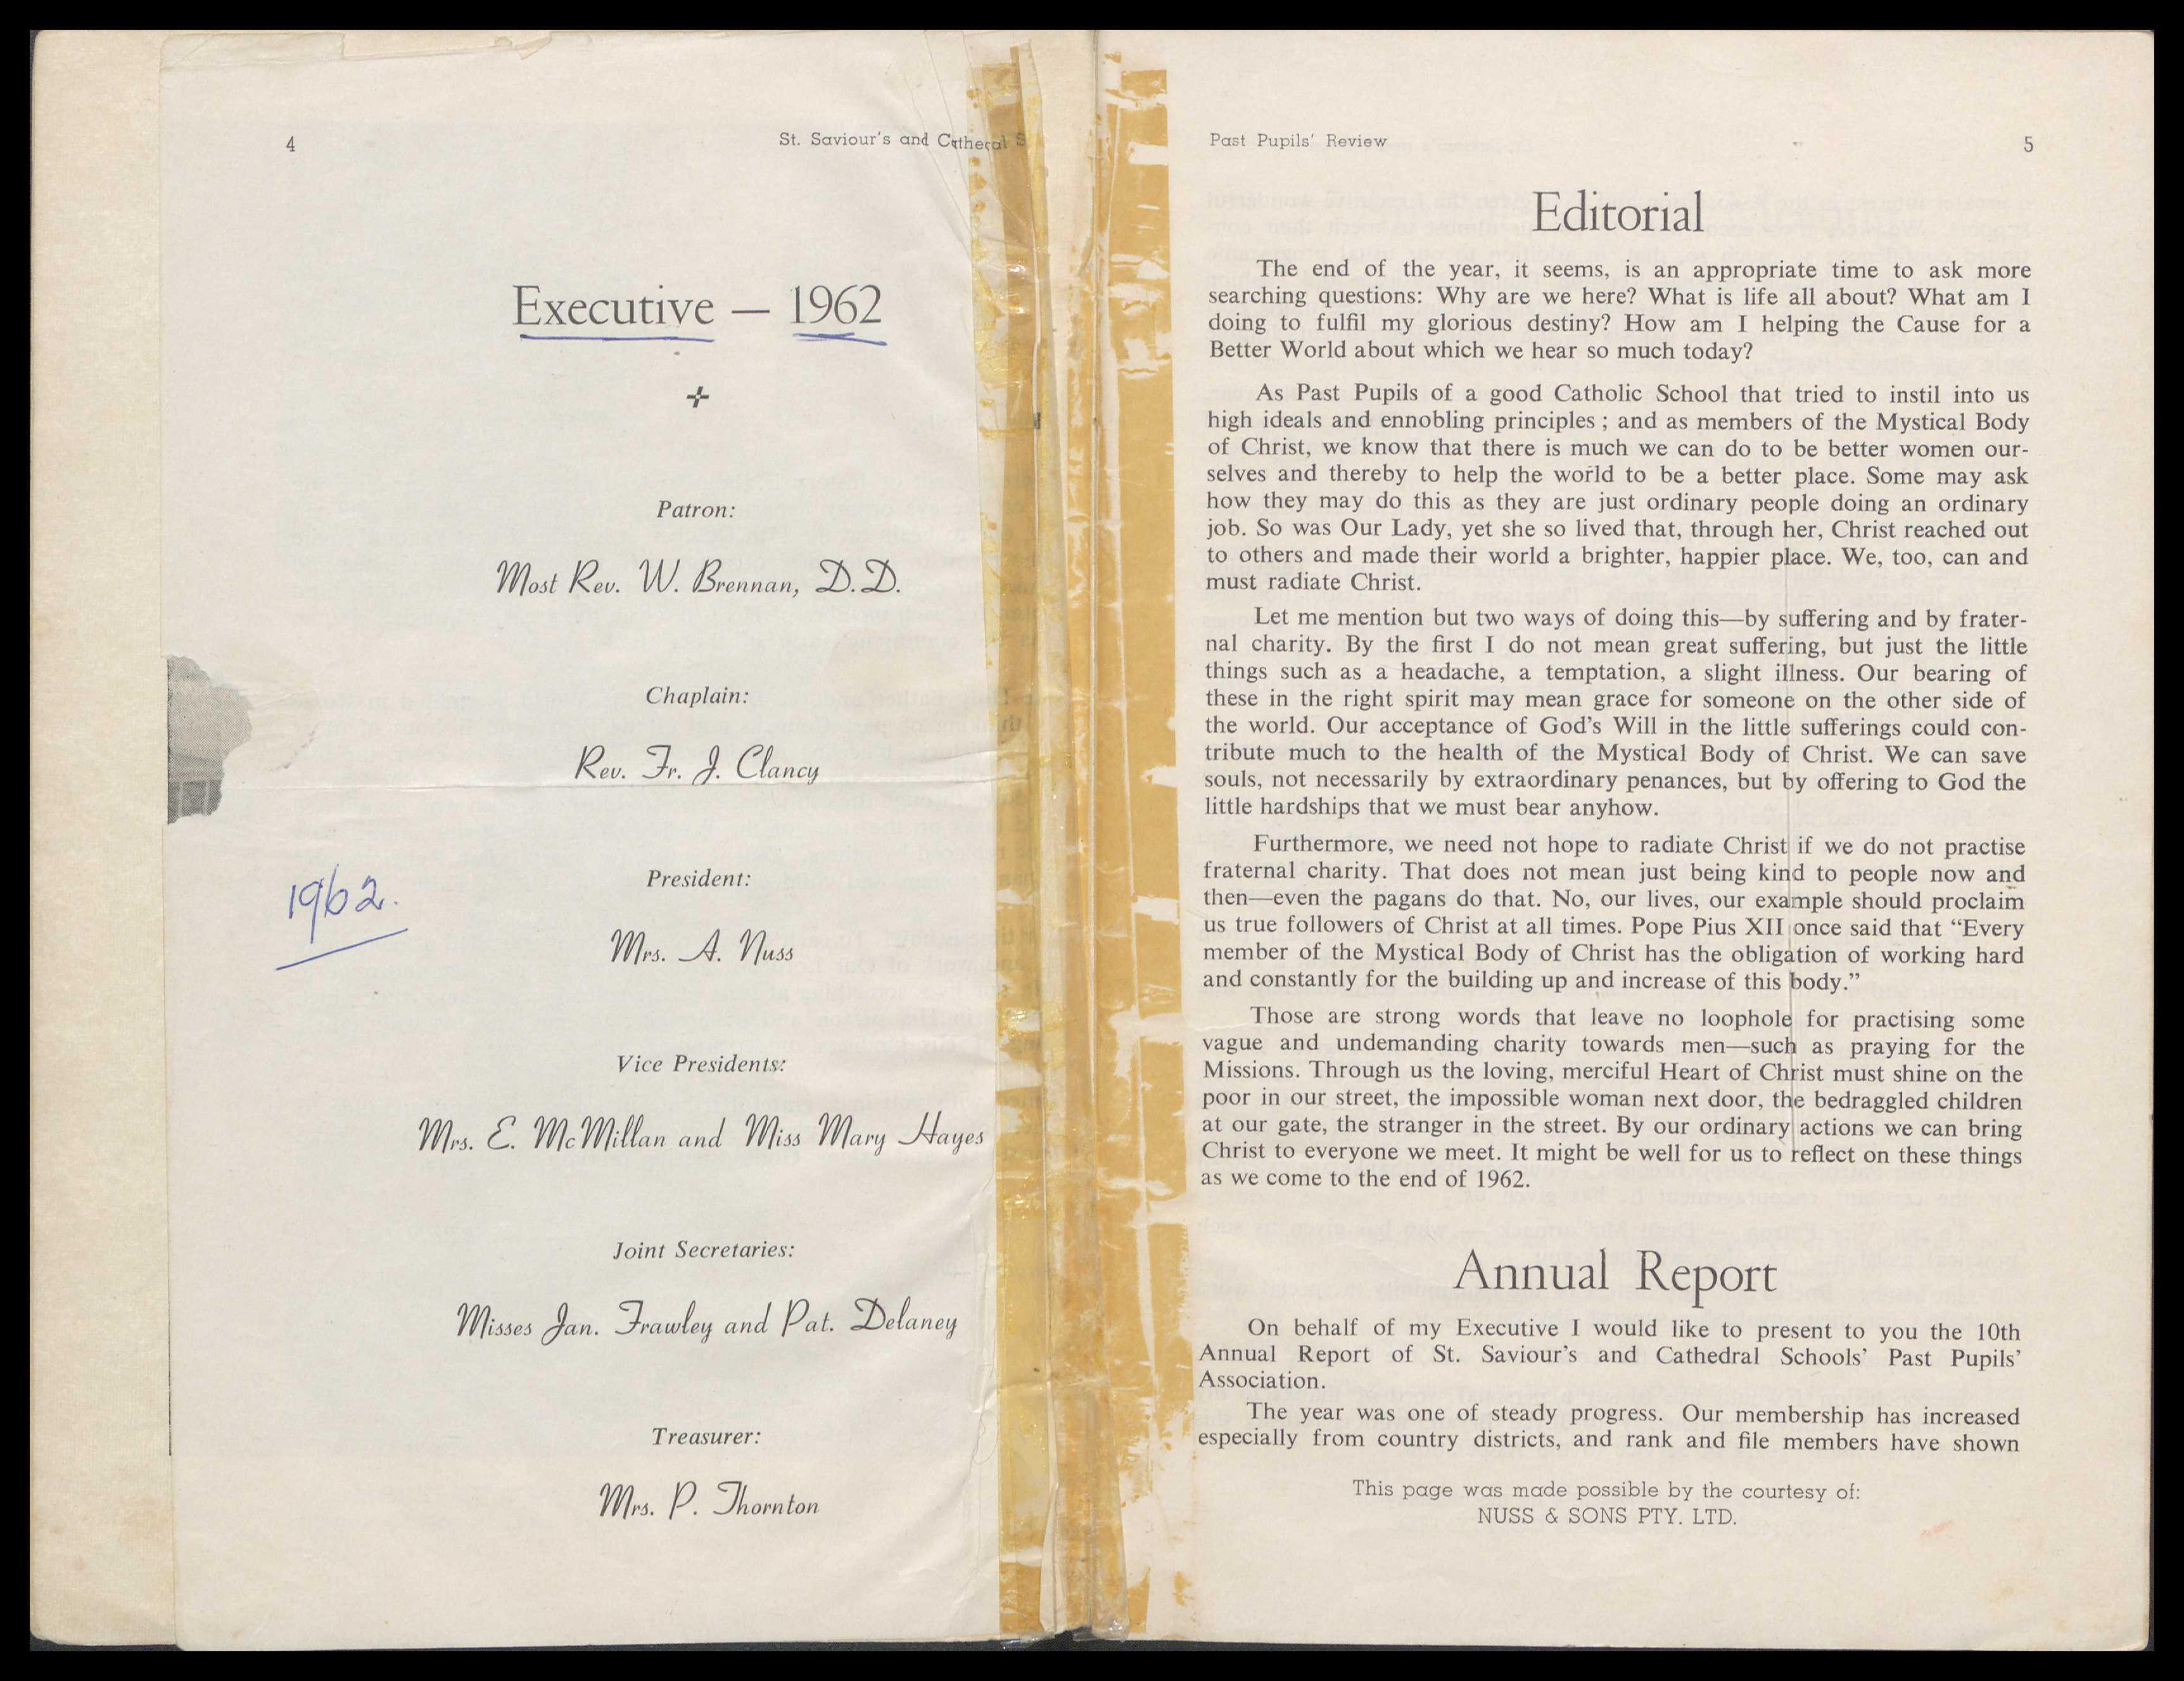 4
St. Saviour's and Cathedral S
Executive — 1962
Patron:
Most Rev. W. Brennan, D.D.
Chaplain:
Rev. Fr. J. Clancy
President:
1962.
Mrs. A. Nuss
Vice Presidents:
Mrs. E. McMillan and Miss Mary Hayes
Joint Secretaries:
Misses Jan. Frawley and Pat. Delaney
Treasurer:
Mrs. P. Thornton
Past Pupils' Review
5
Editorial
The end of the year, it seems, is an appropriate time to ask more
searching questions: Why are we here? What is life all about? What am I
doing to fulfil my glorious destiny? How am I helping the Cause for a
Better World about which we hear so much today?
As Past Pupils of a good Catholic School that tried to instil into us
high ideals and ennobling principles ; and as members of the Mystical Body
of Christ, we know that there is much we can do to be better women our-
selves and thereby to help the world to be a better place. Some may ask
how they may do this as they are just ordinary people doing an ordinary
job. So was Our Lady, yet she so lived that, through her, Christ reached out
to others and made their world a brighter, happier place. We, too, can and
must radiate Christ.
Let me mention but two ways of doing this—by suffering and by frater-
nal charity. By the first I do not mean great suffering, but just the little
things such as a headache, a temptation, a slight illness. Our bearing of
these in the right spirit may mean grace for someone on the other side of
the world. Our acceptance of God's Will in the little sufferings could con-
tribute much to the health of the Mystical Body of Christ. We can save
souls, not necessarily by extraordinary penances, but by offering to God the
little hardships that we must bear anyhow.
Furthermore, we need not hope to radiate Christ if we do not practise
fraternal charity. That does not mean just being kind to people now and
then—even the pagans do that. No, our lives, our example should proclaim
us true followers of Christ at all times. Pope Pius XII once said that “Every
member of the Mystical Body of Christ has the obligation of working hard
and constantly for the building up and increase of this body.”
Those are strong words that leave no loophole for practising some
vague and undemanding charity towards men—such as praying for the
Missions. Through us the loving, merciful Heart of Christ must shine on the
poor in our street, the impossible woman next door, the bedraggled children
at our gate, the stranger in the street. By our ordinary actions we can bring
Christ to everyone we meet. It might be well for us to reflect on these things
as we come to the end of 1962.
Annual Report
On behalf of my Executive I would like to present to you the 10th
Annual Report of St. Saviour's and Cathedral Schools' Past Pupils'
Association.
The year was one of steady progress. Our membership has increased
especially from country districts, and rank and file members have shown
This page was made possible by the courtesy of:
NUSS & SONS PTY. LTD.